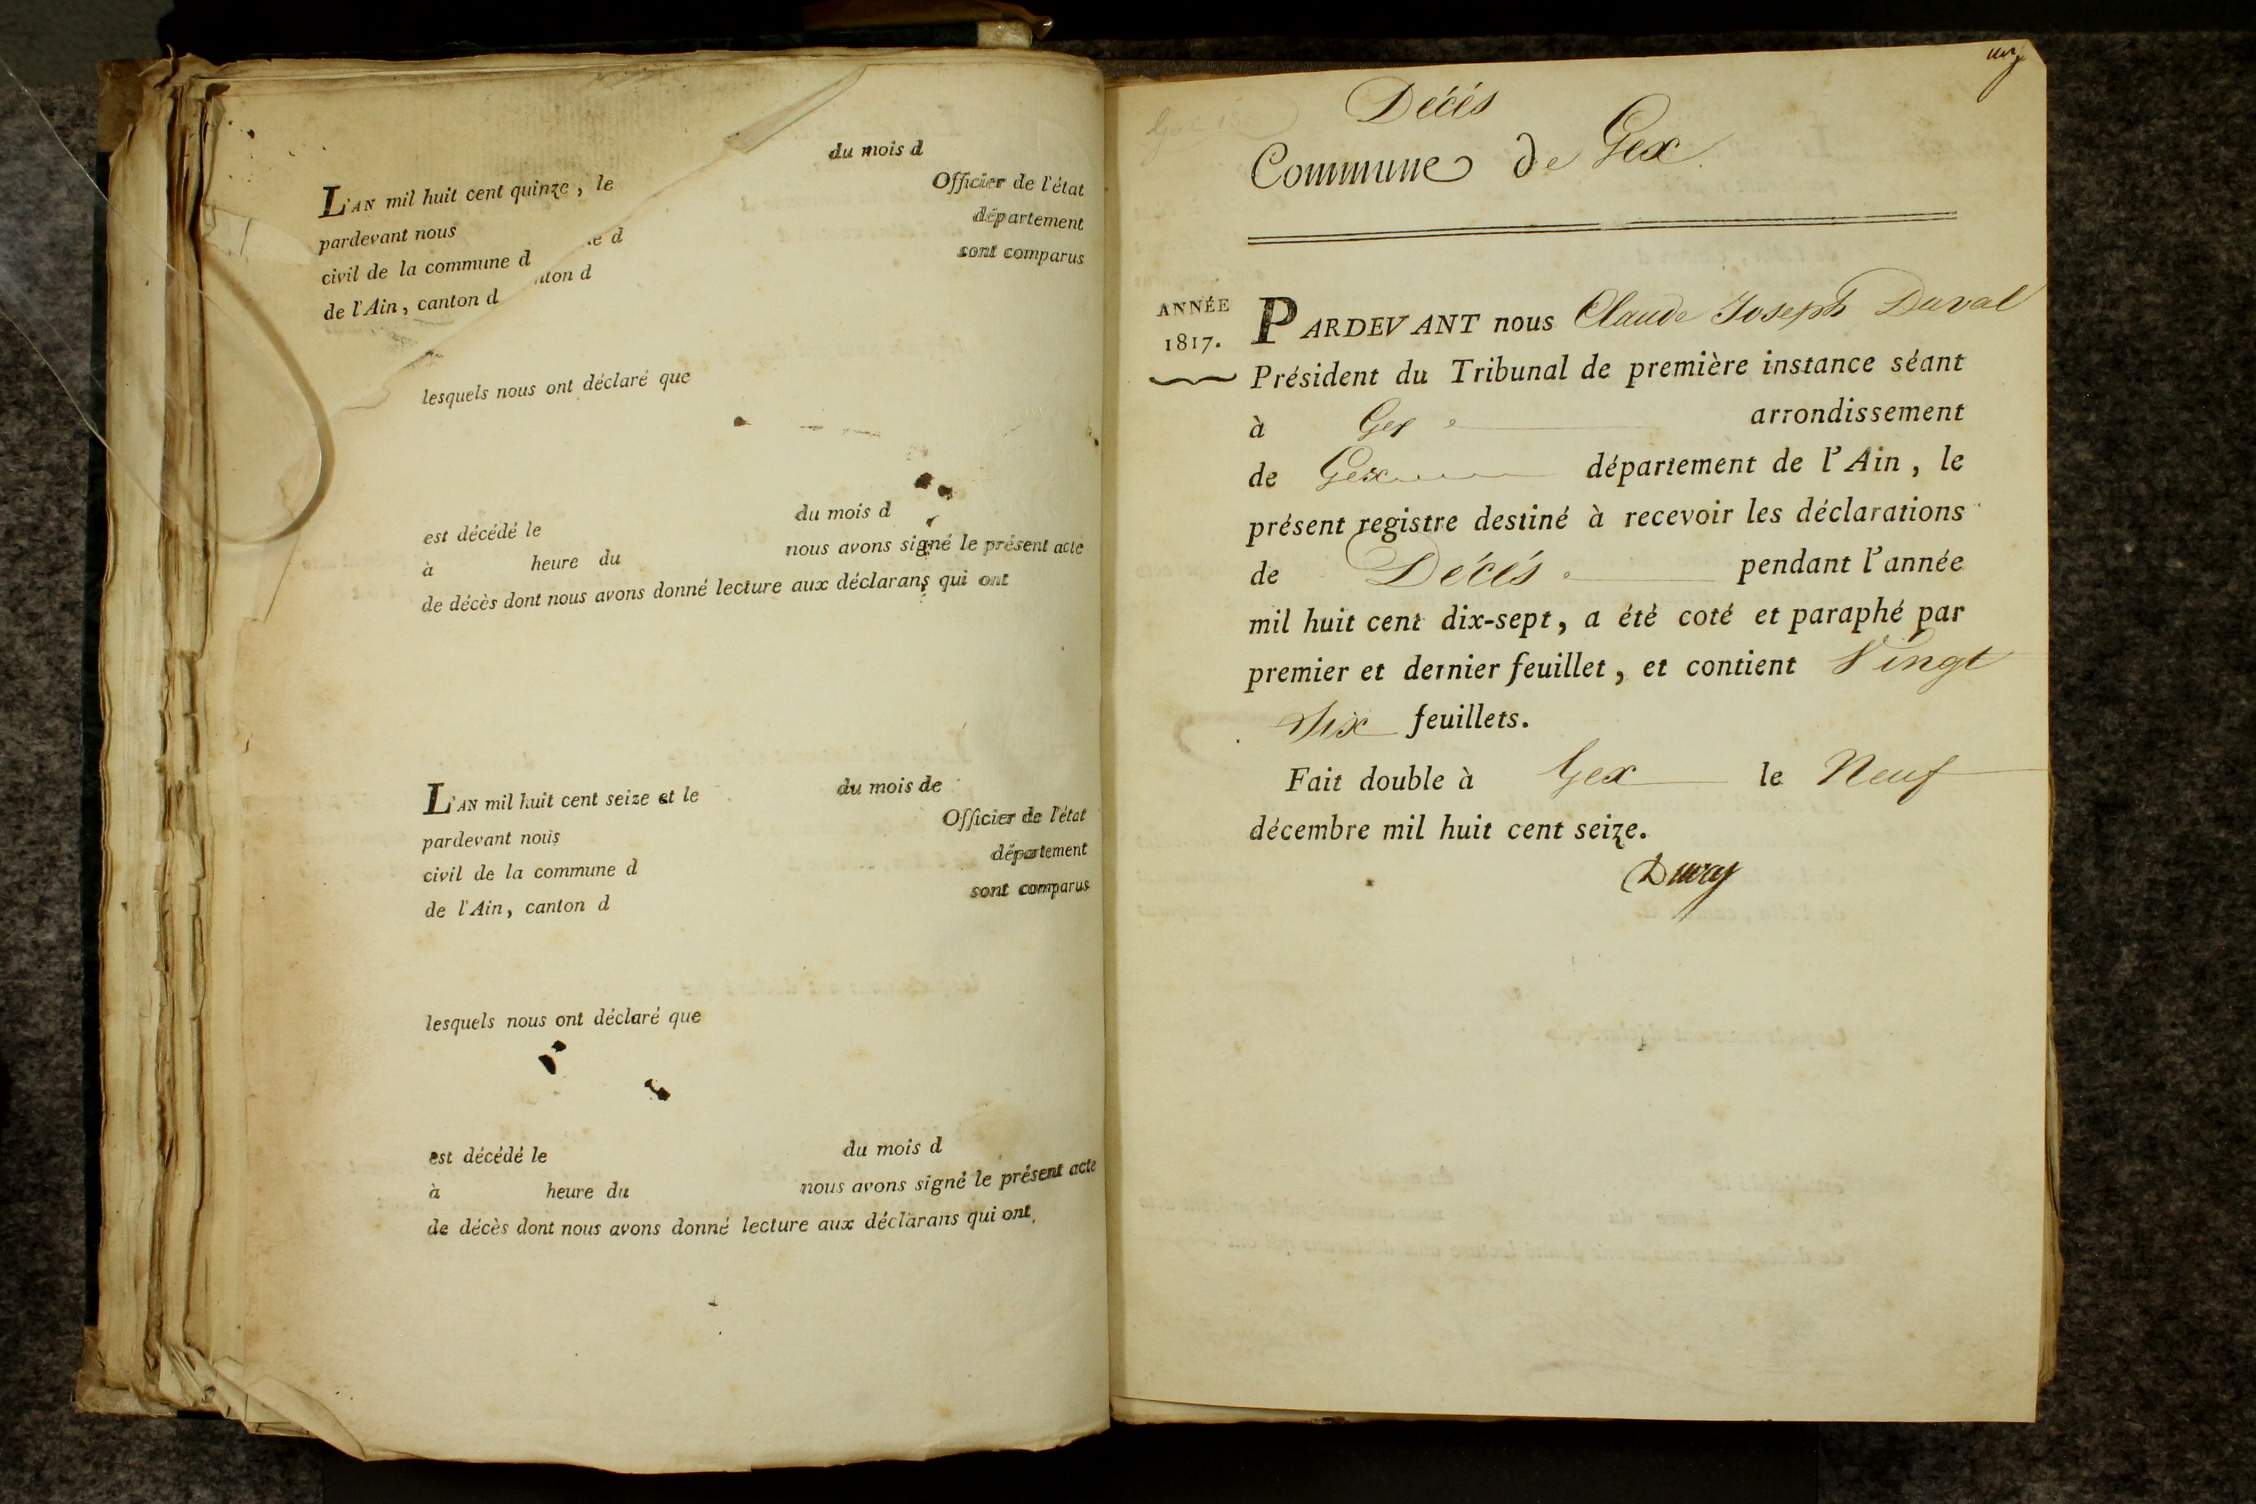 L'AN mil huit cent quinze, le du mois d
pardevant nous Officier de l'état
civil de la commune d département
de l'Ain, canton d sont comparus
lesquels nous ont déclaré que
est décédé le du mois d
à heure du nous avons signé le présent acte
de décès dont nous avons donné lecture aux déclarans qui ont
L'AN mil huit cent seize et le du mois de
pardevant nous Officier de l'état
civil de la commune d département
de l'Ain, canton d sont comparus
lesquels nous ont déclaré que
est décédé le du mois d
à heure du nous avons signé le présent acte
de décès dont nous avons donné lecture aux déclarans qui ont
Décés
Commune de Gex
ANNÉE
1817.
PARDEVANT nous Claude Joseph Duval
Président du Tribunal de première instance séant
à Gex arrondissement
de Gex département de l'Ain, le
présent registre destiné à recevoir les déclarations
de Décés pendant l'année
mil huit cent dix-sept, a été coté et paraphé par
premier et dernier feuillet, et contient Vingt
Six feuillets.
Fait double à Gex le Neuf
décembre mil huit cent seize.